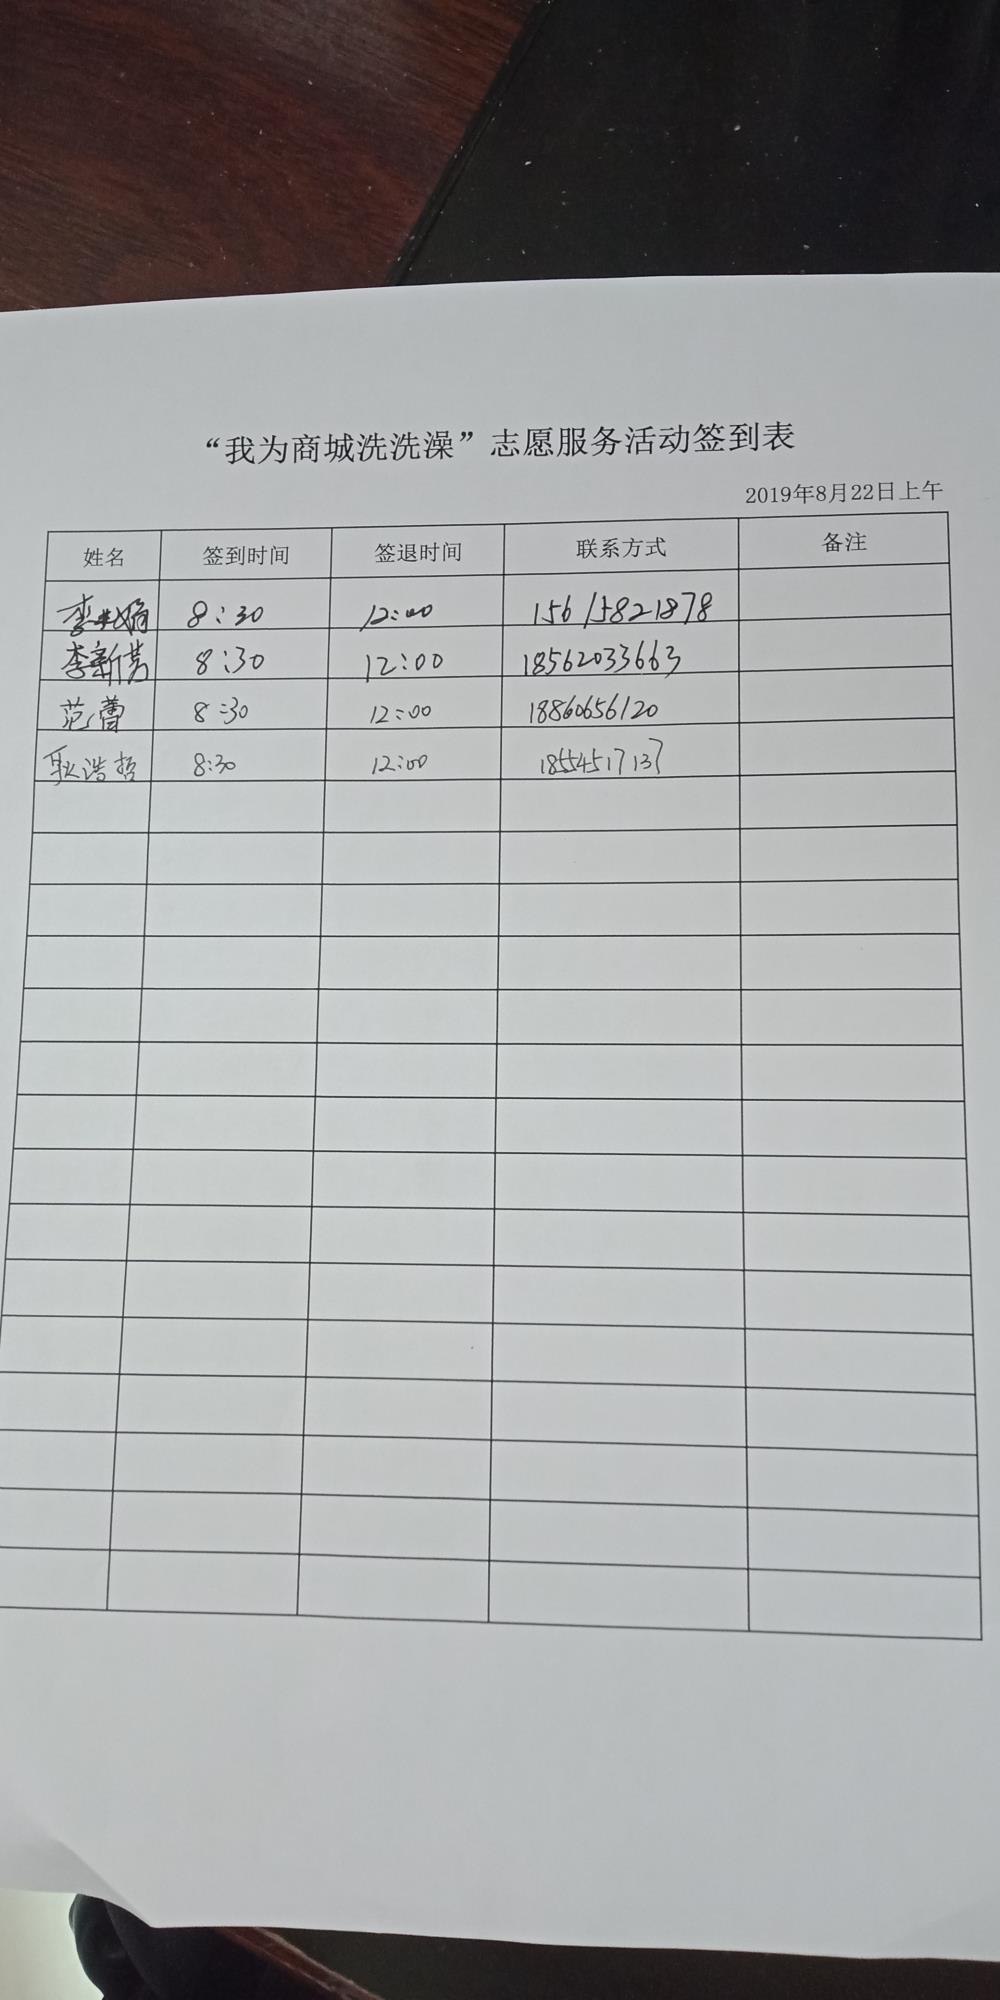 “我为商城洗洗澡”志愿服务活动签到表
2019年8月22日上午
姓名 签到时间 签退时间 联系方式 备注
8:30 12:00 15615821878
李新芳 8:30 12:00 18562033663
范蕾 8:30 12:00 18860656120
耿浩哲 8:30 12:00 18554517137